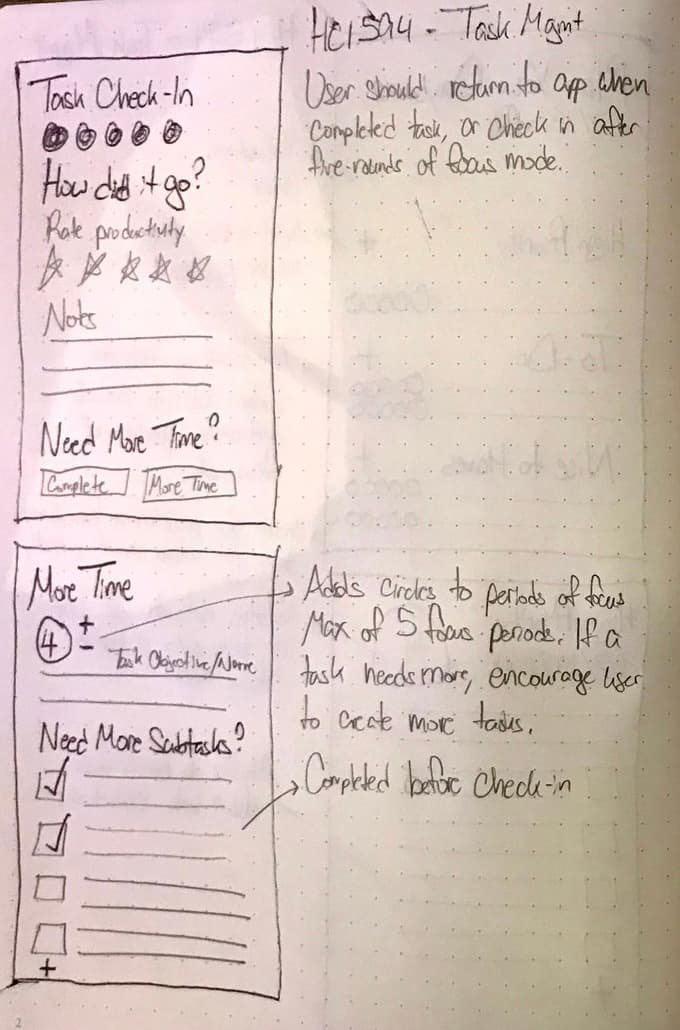 HCI 594 - Task Mgmt
Task Check-In
How did it go?
Rate productivity
Notes
Need More Time?
Complete
More Time
User should return to app when
completed task, or check in after
five-rounds of focus mode.
More Time
4
+
-
Task Objective/Name
Need More Subtasks?
+
Adds circles to periods of focus
Max of 5 focus periods. If a
task needs more, encourage user
to create more tasks.
Completed before check-in
High Priority
+
To-Do
+
Nice to Haves
+
2